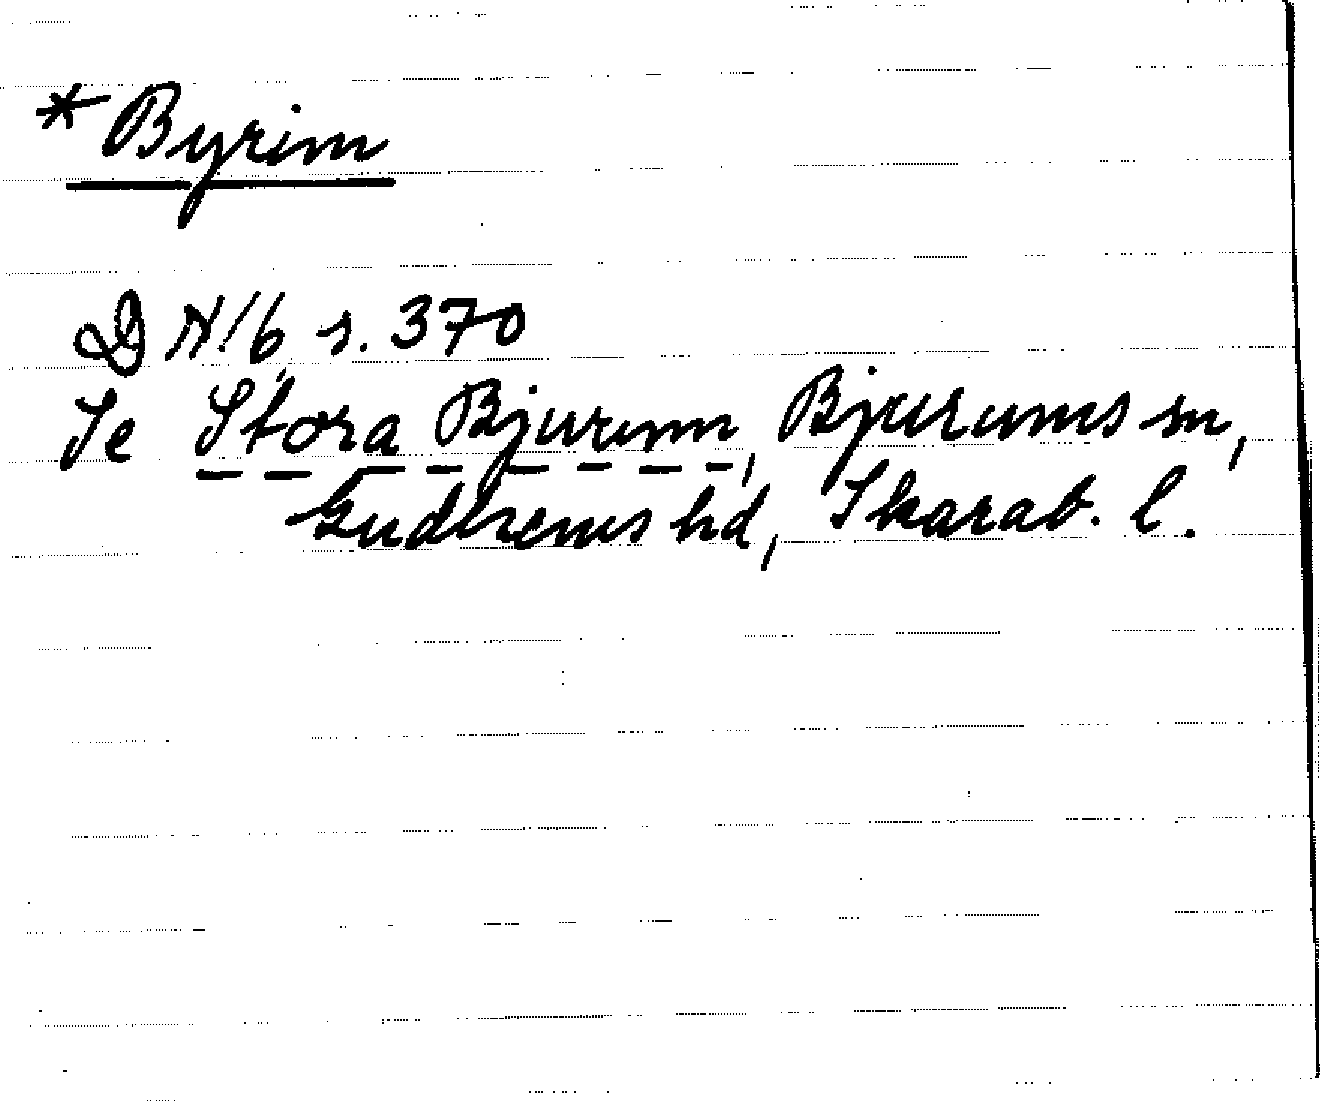 *Byrim
DN! 6, s. 370
Se Stora Bjurum, Bjurums sn,
Gudhems hd, Skarab. l.